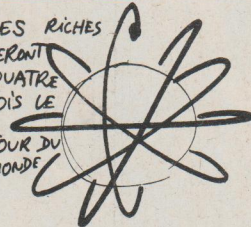 ES RICHES
ERONT
UATRE
OIS LE
OUR DU
ONDE